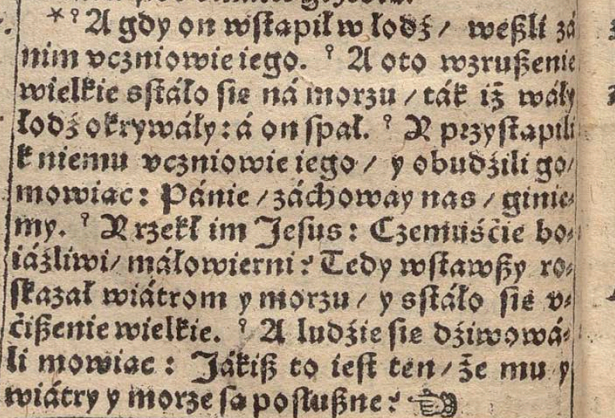 *⁹ A gdy on wstąpił w łodź / weßli zá
nim vczniowie iego. ⁹ A oto wzrußenie
wielkie sstáło sie ná morzu / ták iż wáły
łodź okrywáły: á on spał. ⁹ Y przystąpili
k niemu vczniowie iego / y obudźili go /
mowiąc: Pánie / záchoway nas / ginie⸗
my. ⁹ Y rzekł im Jesus: Czemuśćie bo⸗
iáźliwi / máłowierni? Tedy wstawßy ro⸗
skazał wiátrom y morzu / y sstáło sie v⸗
ćißenie wielkie. ⁹ A ludźie sie dźiwowá⸗
li mowiąc: Jákiß to iest ten / że mu y
wiátry y morze są poslußne? ☜